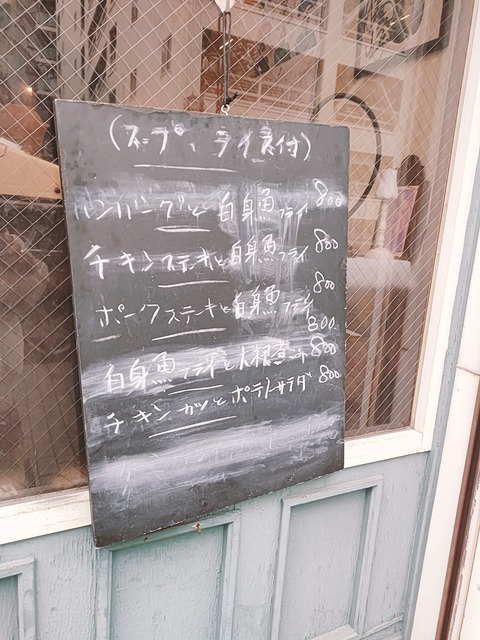 (スープ、ライス付)
ハンバーグと白身魚フライ 800
チキンステーキと白身魚フライ 800
ポークステーキと白身魚フライ 800
800
白身魚フライと大根煮 800
チキンカツとポテトサラダ 800